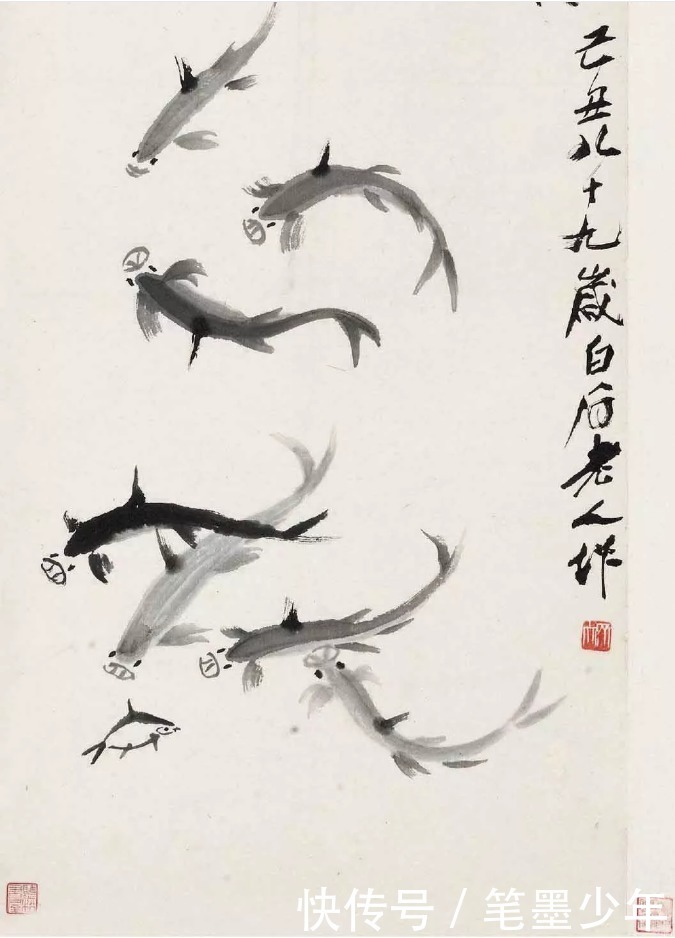 己丑八十九歲白石老人作
快传号 / 笔墨少年